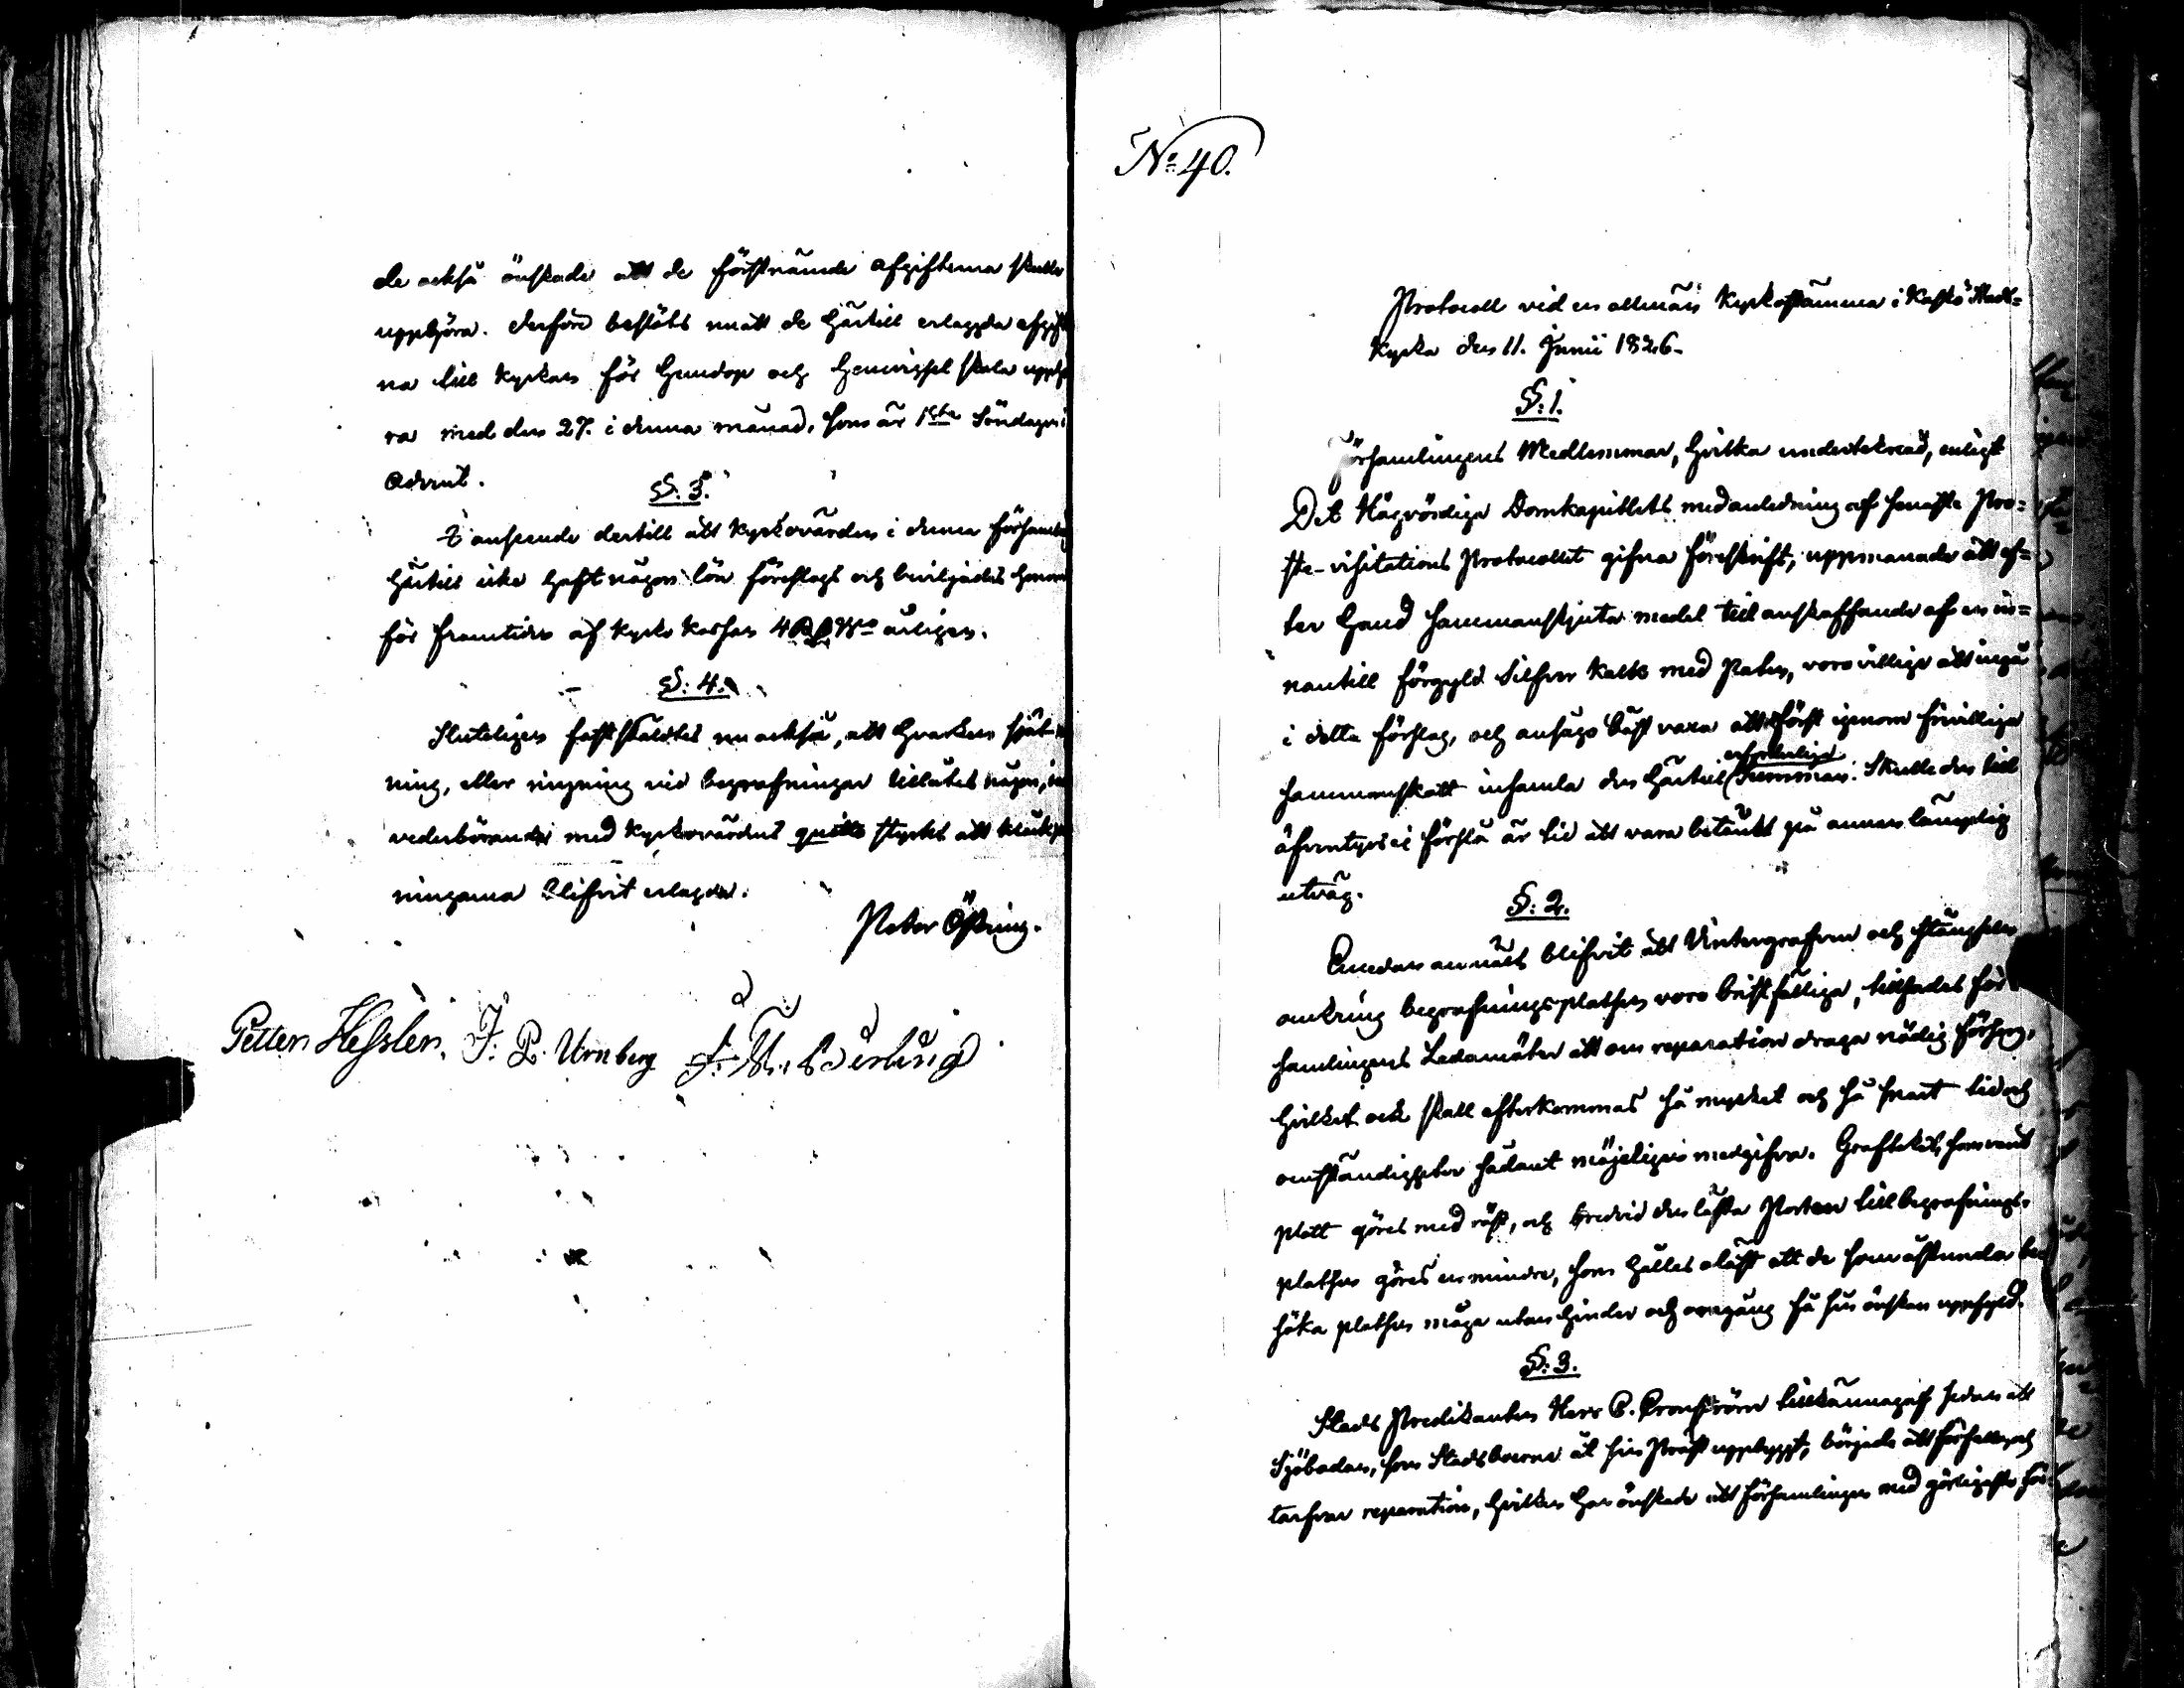 de också önskade att de förstnämde afgifterna skulle
upphöra. Derföre beslöts nu att de härtill erlagda afgift
na till Kyrkan för Hemdop och Hemvigsel skola uppho
ra med den 27. i denna månad, som är 1sta Söndagen i
Advent.
§. 3.
I anseende dertill att Kyrkovärden i denna Församling
härtills icke haft någon lön föreslogs och beviljades honom
för framtiden af Kyrko Kassan 4 Rub. Bco årligen.
§: 4.
Sluteligen fastställdtes nu också, att hvarken själ-
ning, eller ringning vid begrafningar tillåtes någon,
vederbörande med Kyrkovärdens quitto styrkt att
ningarna blifvit erlagda.
Peter Östring.
Petter Hesslen. J. P. Urnberg
No 40.
Protocoll vid en allmän Kyrkostämma i Kaskö Stads-
Kyrka den 11. Junii 1826.
§: 1.
Församlingens Medlemmar, hvilka undertecknad, enligt
Det Högvördiga Domkapitlets med anledning af senaste Pro-
ste-visitations Protocollet gifna föreskrift, uppmanade att ef-
ter hand sammanskjuta medel till anskaffande af en in-
nantill förgyld Silfver Kalk med Paten, voro villige att ingå
i detta förslag, och ansågo bäst vara att först igenom frivilliga
sammanskott insamla den härtill erforderliga Summan. Skulle den till
äfventyrs ei förslå är tid att vara betänkt på annan lämplig
utväg.
§: 2.
Emedan anmäls blifvit att Vintergrafven och stängseln
omkring begrafningsplatsen voro bristfällige, tillsades För-
samlingens Ledamöter att om reparation draga nödig försorg,
hvilket ock skall efterkommas så mycket och så snart tid och
omständigheter sådant möjeligen medgifva. Graftaket, som varit
platt göres med röst, och bredvid den låsta Porten till begrafnings-
platsen göres en mindre, som hålles olåst att de som åstunda be-
söka platsen måga utan hinder och omgång få sin önskan uppfyld.
§: 3.
Stads Predikanten Herr C. Cronström tillkännagaf sedan att
Sjöbodan, som Stadsboerne åt sin Prest uppbyggt, började att förfalla och
tarfvar reparation, hvilken han önskade att församlingen med görligaste för-